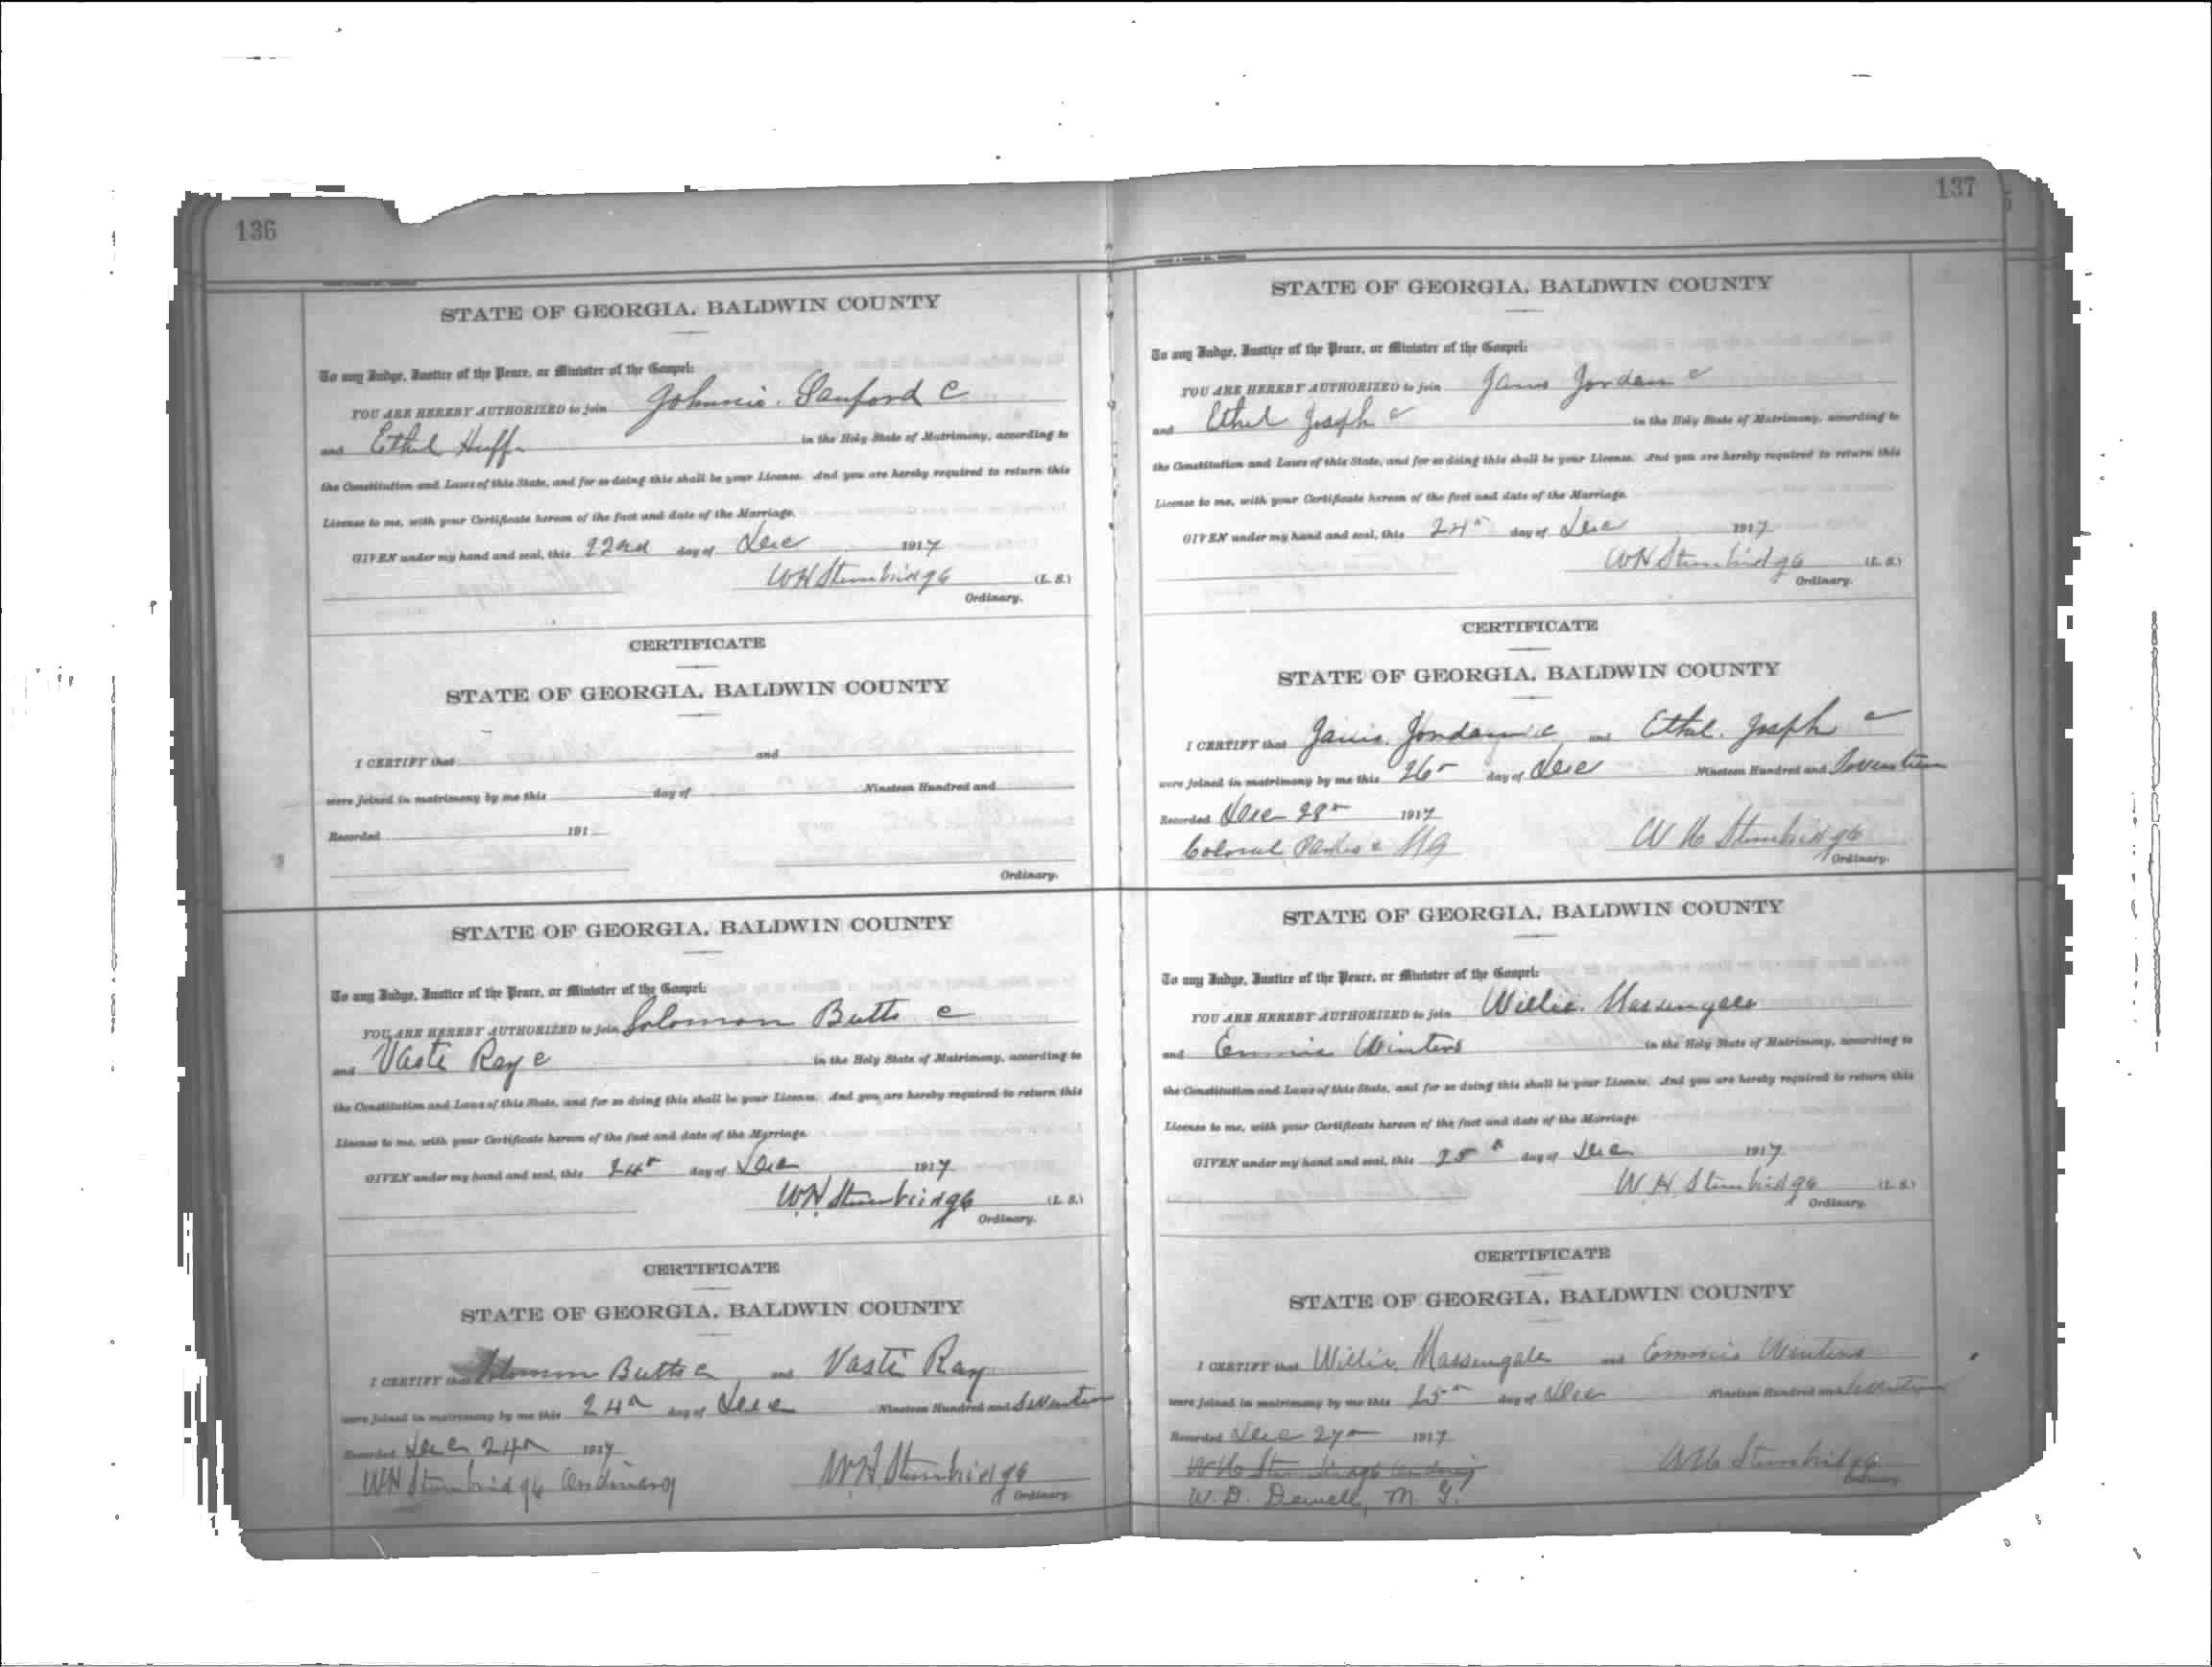 136
STATE OF GEORGIA, BALDWIN COUNTY
To any Judge, Justice of the Peace, or Minister of the Gospel:
YOU ARE HEREBY AUTHORIZED to join Johnnie. Sanford C
and Ethel Huff in the Holy State of Matrimony, according to
the Constitution and Laws of this State, and for so doing this shall be your License. And you are hereby required to return this
License to me, with your Certificate hereon of the fact and date of the Marriage.
GIVEN under my hand and seal, this 22nd day of Dec 1917
WH Stembridge (L. S.)
Ordinary.
CERTIFICATE
STATE OF GEORGIA, BALDWIN COUNTY
I CERTIFY that and
were joined in matrimony by me this day of Nineteen Hundred and
Recorded 191
Ordinary.
STATE OF GEORGIA, BALDWIN COUNTY
To any Judge, Justice of the Peace, or Minister of the Gospel:
YOU ARE HEREBY AUTHORIZED to join Solomon Butts c
and Vasti Ray c in the Holy State of Matrimony, according to
the Constitution and Laws of this State, and for so doing this shall be your License. And you are hereby required to return this
License to me, with your Certificate hereon of the fact and date of the Marriage.
GIVEN under my hand and seal, this 24th day of Dec 1917
WH Stembridge (L. S.)
Ordinary.
CERTIFICATE
STATE OF GEORGIA, BALDWIN COUNTY
I CERTIFY that Solomon Butts c and Vasti Ray
were joined in matrimony by me this 24th day of Dec Nineteen Hundred and Seventeen
Recorded Dec 24th 1917
WH Stembridge Ordinary WH Stembridge
Ordinary
137
STATE OF GEORGIA, BALDWIN COUNTY
To any Judge, Justice of the Peace, or Minister of the Gospel:
YOU ARE HEREBY AUTHORIZED to join Jordan c
and Ethel Joseph c in the Holy State of Matrimony, according to
the Constitution and Laws of this State, and for so doing this shall be your License. And you are hereby required to return this
License to me, with your Certificate hereon of the fact and date of the Marriage.
GIVEN under my hand and seal, this 24th day of Dec 1917
WH Stembridge (L. S.)
Ordinary.
CERTIFICATE
STATE OF GEORGIA, BALDWIN COUNTY
I CERTIFY that Jordan c and Ethel. Joseph c
were joined in matrimony by me this 26th day of Dec Nineteen Hundred and Seventeen
Recorded Dec 28th 1917
W H Stembridge
Ordinary.
STATE OF GEORGIA, BALDWIN COUNTY
To any Judge, Justice of the Peace, or Minister of the Gospel:
YOU ARE HEREBY AUTHORIZED to join Willie. Massengale
and Emmie Winters in the Holy State of Matrimony, according to
the Constitution and Laws of this State, and for so doing this shall be your License. And you are hereby required to return this
License to me, with your Certificate hereon of the fact and date of the Marriage.
GIVEN under my hand and seal, this 25th day of Dec 1917
W. H. Stembridge (L. S.)
Ordinary.
CERTIFICATE
STATE OF GEORGIA, BALDWIN COUNTY
I CERTIFY that Willie. Massengale and Emmie Winters
were joined in matrimony by me this 25th day of Dec Nineteen Hundred and Seventeen
Recorded Dec 27th 1917
WH Stembridge Ordinary WH Stembridge
W. D. Dewell, M. G. Ordinary